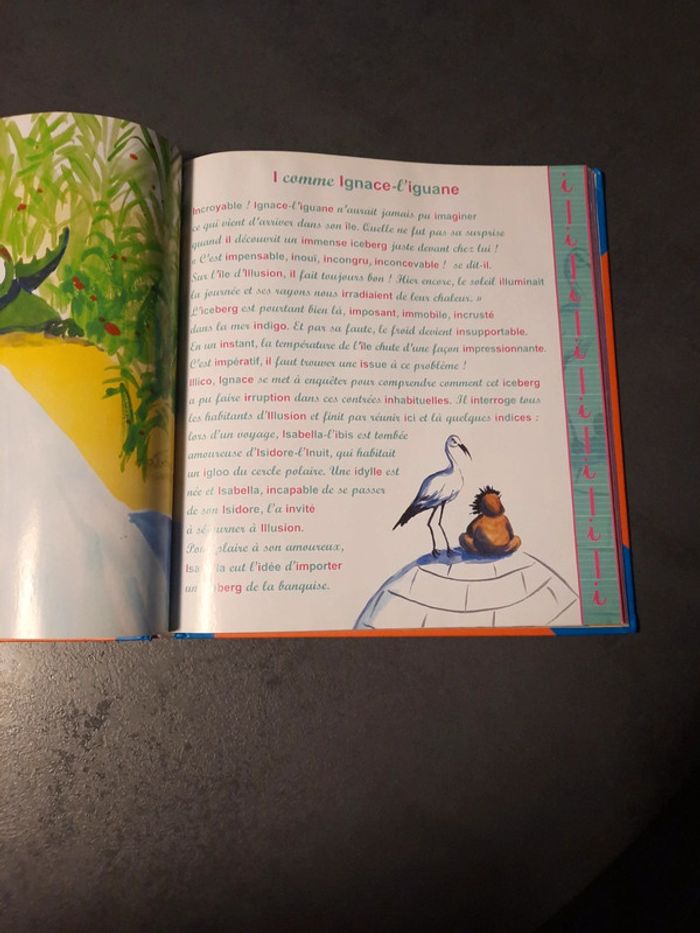 I comme Ignace-l'iguane
Incroyable ! Ignace-l'iguane n'aurait jamais pu imaginer
ce qui vient d'arriver dans son île. Quelle ne fut pas sa surprise
quand il découvrit un immense iceberg juste devant chez lui !
« C'est impensable, inouï, incongru, inconcevable ! se dit-il.
Sur l'île d'Illusion, il fait toujours bon ! Hier encore, le soleil illuminait
la journée et ses rayons nous irradiaient de leur chaleur. »
L'iceberg est pourtant bien là, imposant, immobile, incrusté
dans la mer indigo. Et par sa faute, le froid devient insupportable.
En un instant, la température de l'île chute d'une façon impressionnante.
C'est impératif, il faut trouver une issue à ce problème !
Illico, Ignace se met à enquêter pour comprendre comment cet iceberg
a pu faire irruption dans ces contrées inhabituelles. Il interroge tous
les habitants d'Illusion et finit par réunir ici et là quelques indices :
lors d'un voyage, Isabella-l'ibis est tombée
amoureuse d'Isidore-l'Inuit, qui habitait
un igloo du cercle polaire. Une idylle est
née et Isabella, incapable de se passer
de son Isidore, l'a invité
à séjourner à Illusion.
Pour plaire à son amoureux,
Isabella eut l'idée d'importer
un iceberg de la banquise.
i I i I i I i I i I i I i I i